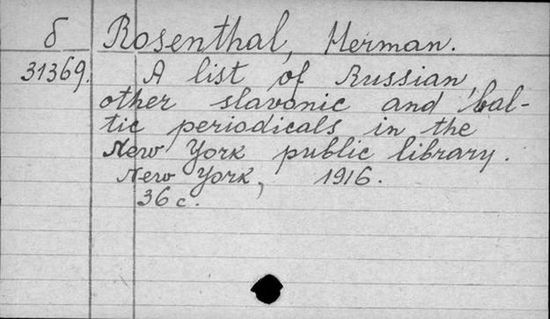 б Rosenthal, Herman.
31369. A list of Russian,
other slavonic and bal-
tic periodicals in the
New York public library.
New York, 1916.
36 c.